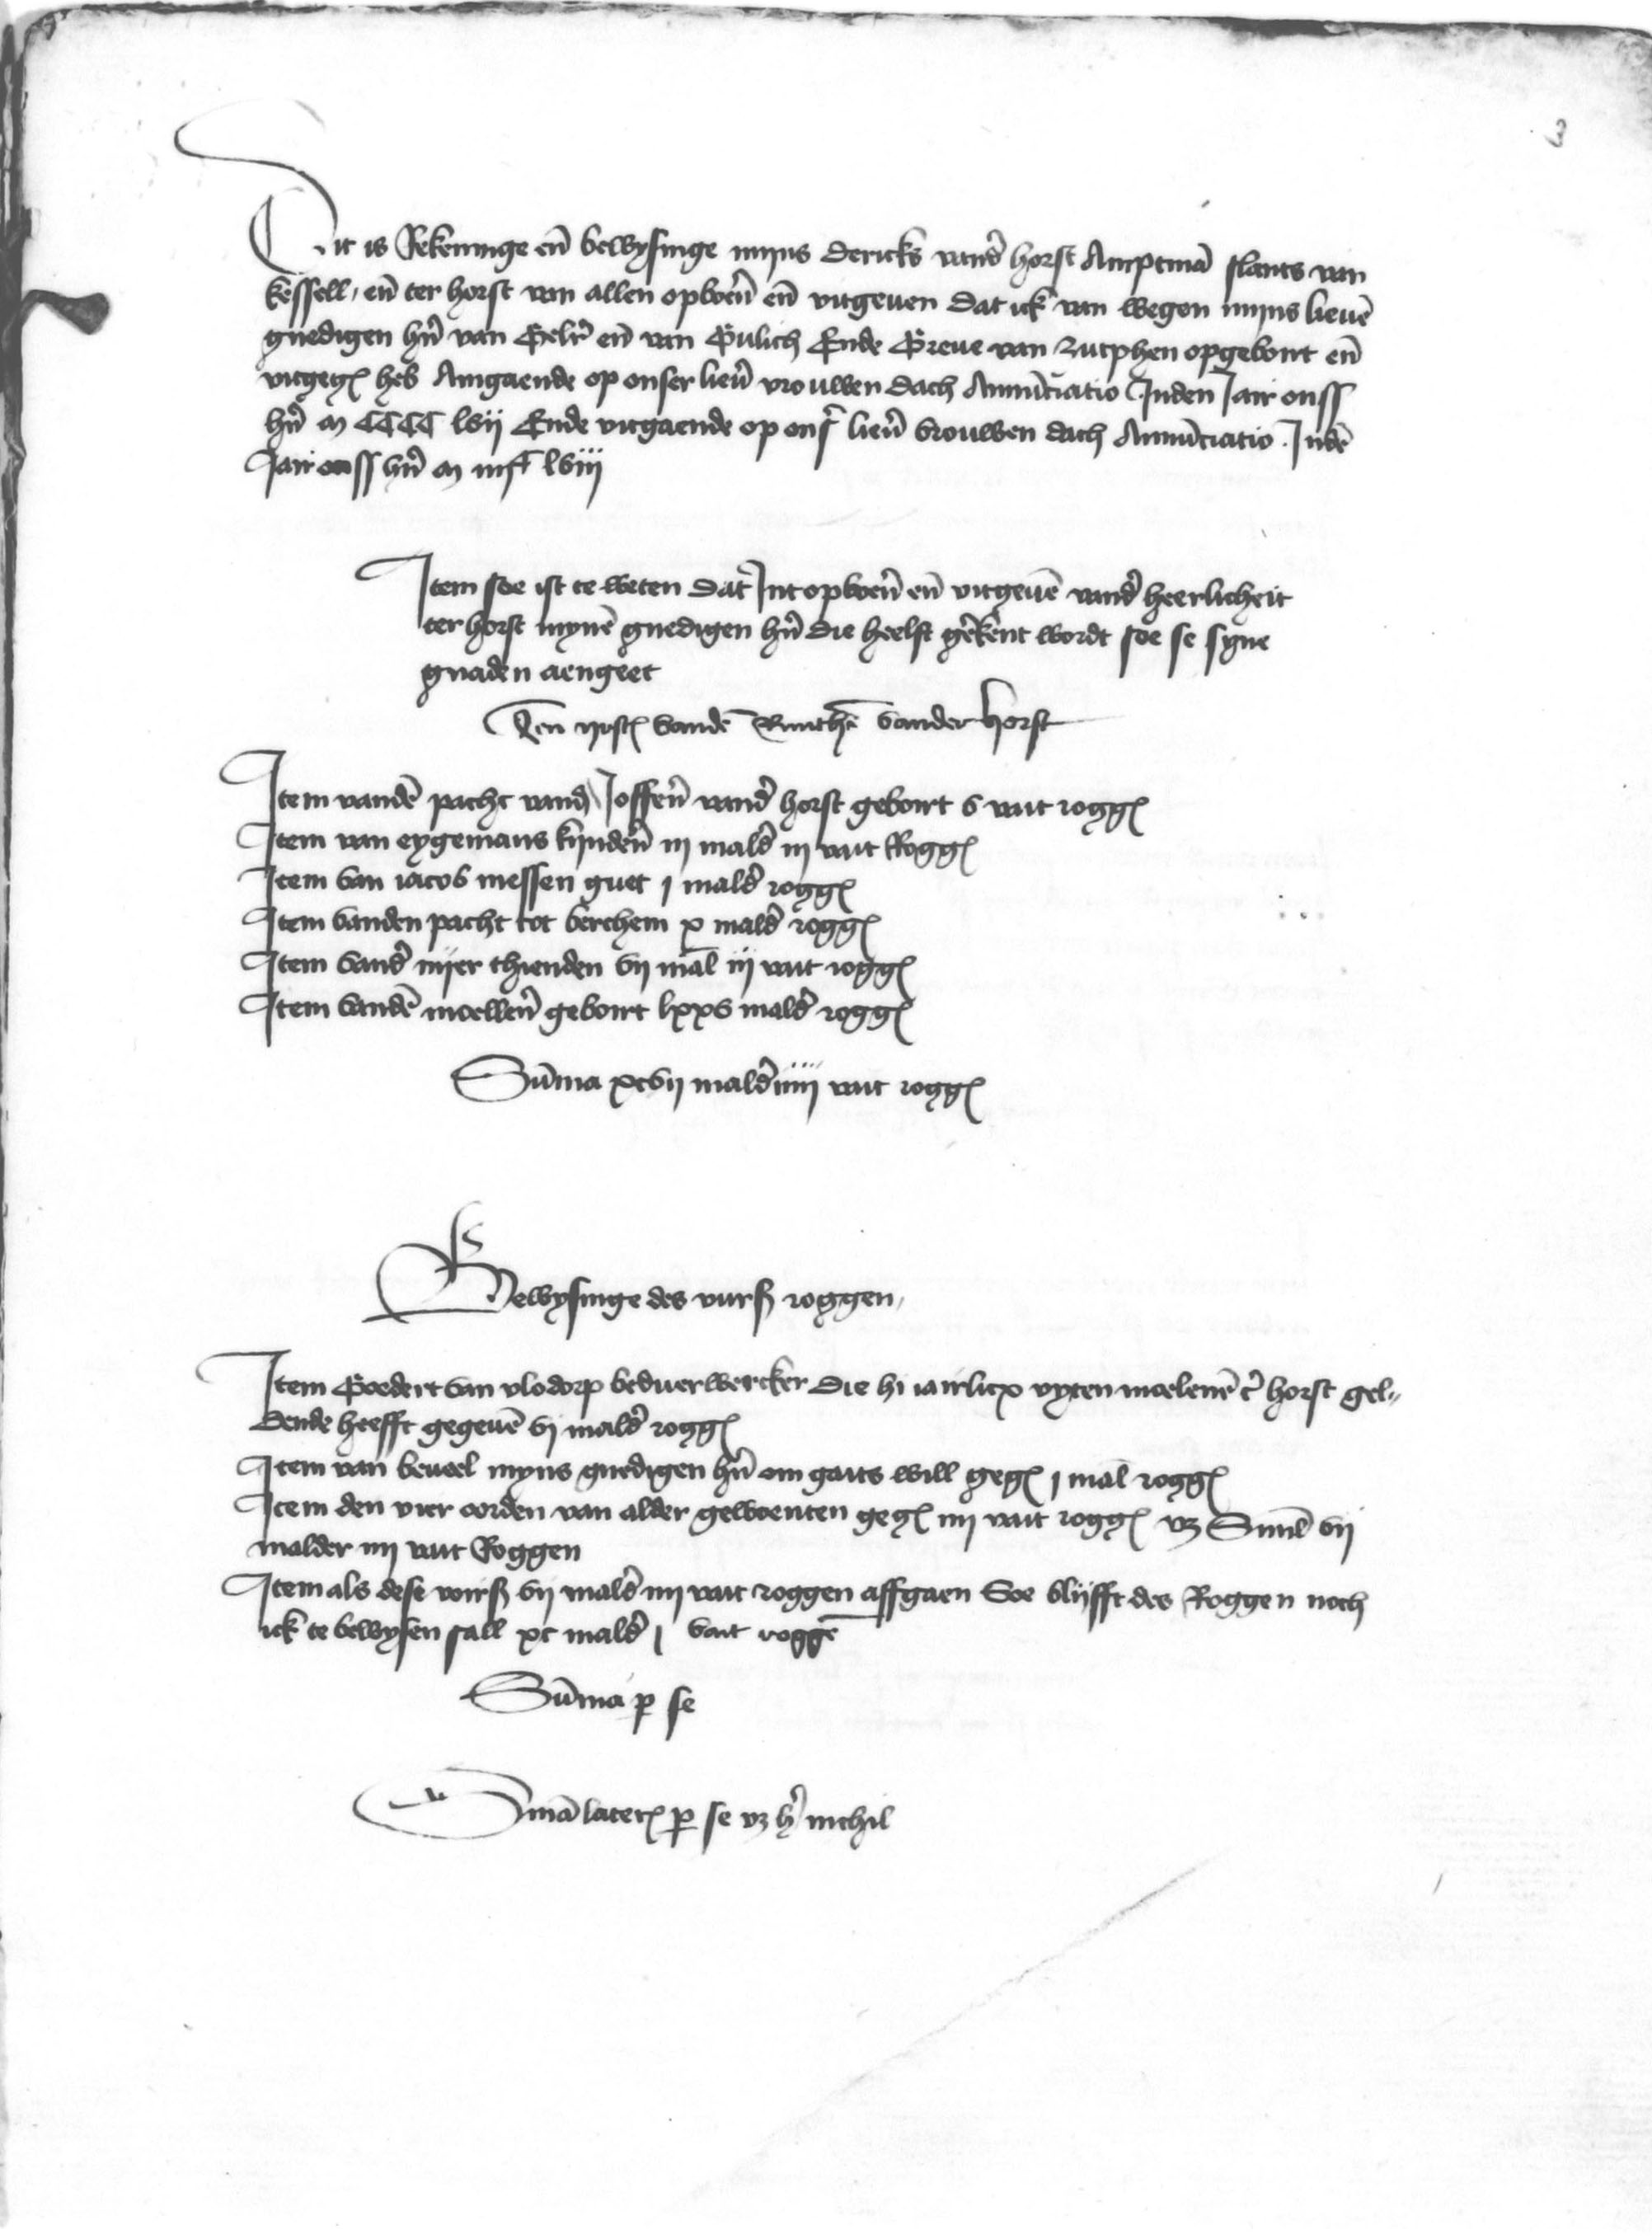 3
Dit is Rekeninge en̄ bewysinge mijns dericks vand' horst Amptmā slants van
kessell, en̄ ter horst van allen opboer̄n en̄ vitgeuen dat ick van wegen mijns lieuē
gnedigen hr̄n van Gelr' en̄ van Gulich Ende Greue van zutphen opgebort en̄
vitgegꝭ heb Aingaende op onser lieu' vrouwen dach Annūciatio Inden Jair onss
hr̄n m CCCC lvij Ende vitgaende op ons' lieu' vrouwen dach Annūciatio Indē
Jair onss hr̄n m iiijc lviij
Item soe ist te weten dat Int opboer̄n en̄ vitgeuē vand' heerlicheit
ter horst mynē gnedigen hr̄n die heelft gerekent wordt soe se syne
gnaden aengeet
Ten yrstꝭ vandē Renthē vander horst
Item vandē pacht vandꝭ Joffer̄n vand' horst geboirt v vait roggꝭ
Item van eygemans kynder̄n iij mald' iij vait Roggꝭ
Item van iacob messen guet j mald' roggꝭ
Item vanden pacht tot berchem x mald' roggꝭ
Item vand' nijer thienden vij māl iij vait roggꝭ
Item vandē moellen' geboirt lxxv mald' roggꝭ
Sūma xcvij mald' iiij vait roggꝭ
Bewysinge des vursß roggen,
Item Goedert van vlodorp beduerwercker die hi iairlicx vyten moelenē t' horst gel„
dende heefft gegeuē vj mald' roggꝭ
Item van beueel myns gnedigen hr̄n om gaits will gegꝭ j māl roggꝭ
Item den vier oorden van alder gewoenten gegꝭ iiij vait roggꝭ vz Summē vij
malder iiij vait Roggen
Item als dese voirsß vij mald' iiij vait roggen affgaen Soe blijfft des Roggen noch
ick te bewysen sall xc mald' j vait roggē
Sūma p se
Sūmā laterꝭ p se vz h' nichil